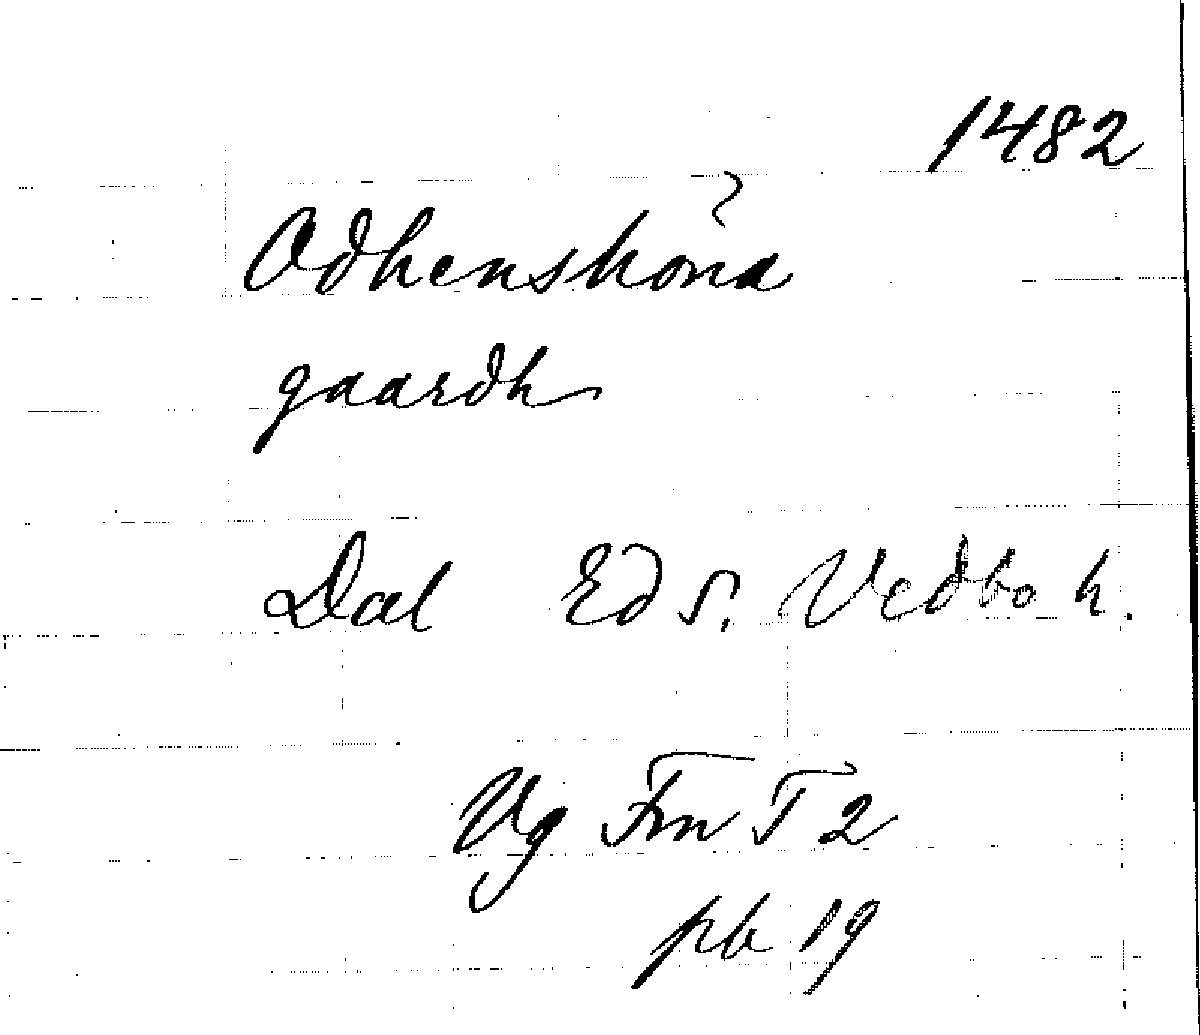 1482
Odhenskona
gaardh
Dal Ed s. Vedbo h.
Vg Fm T 2
pb 19